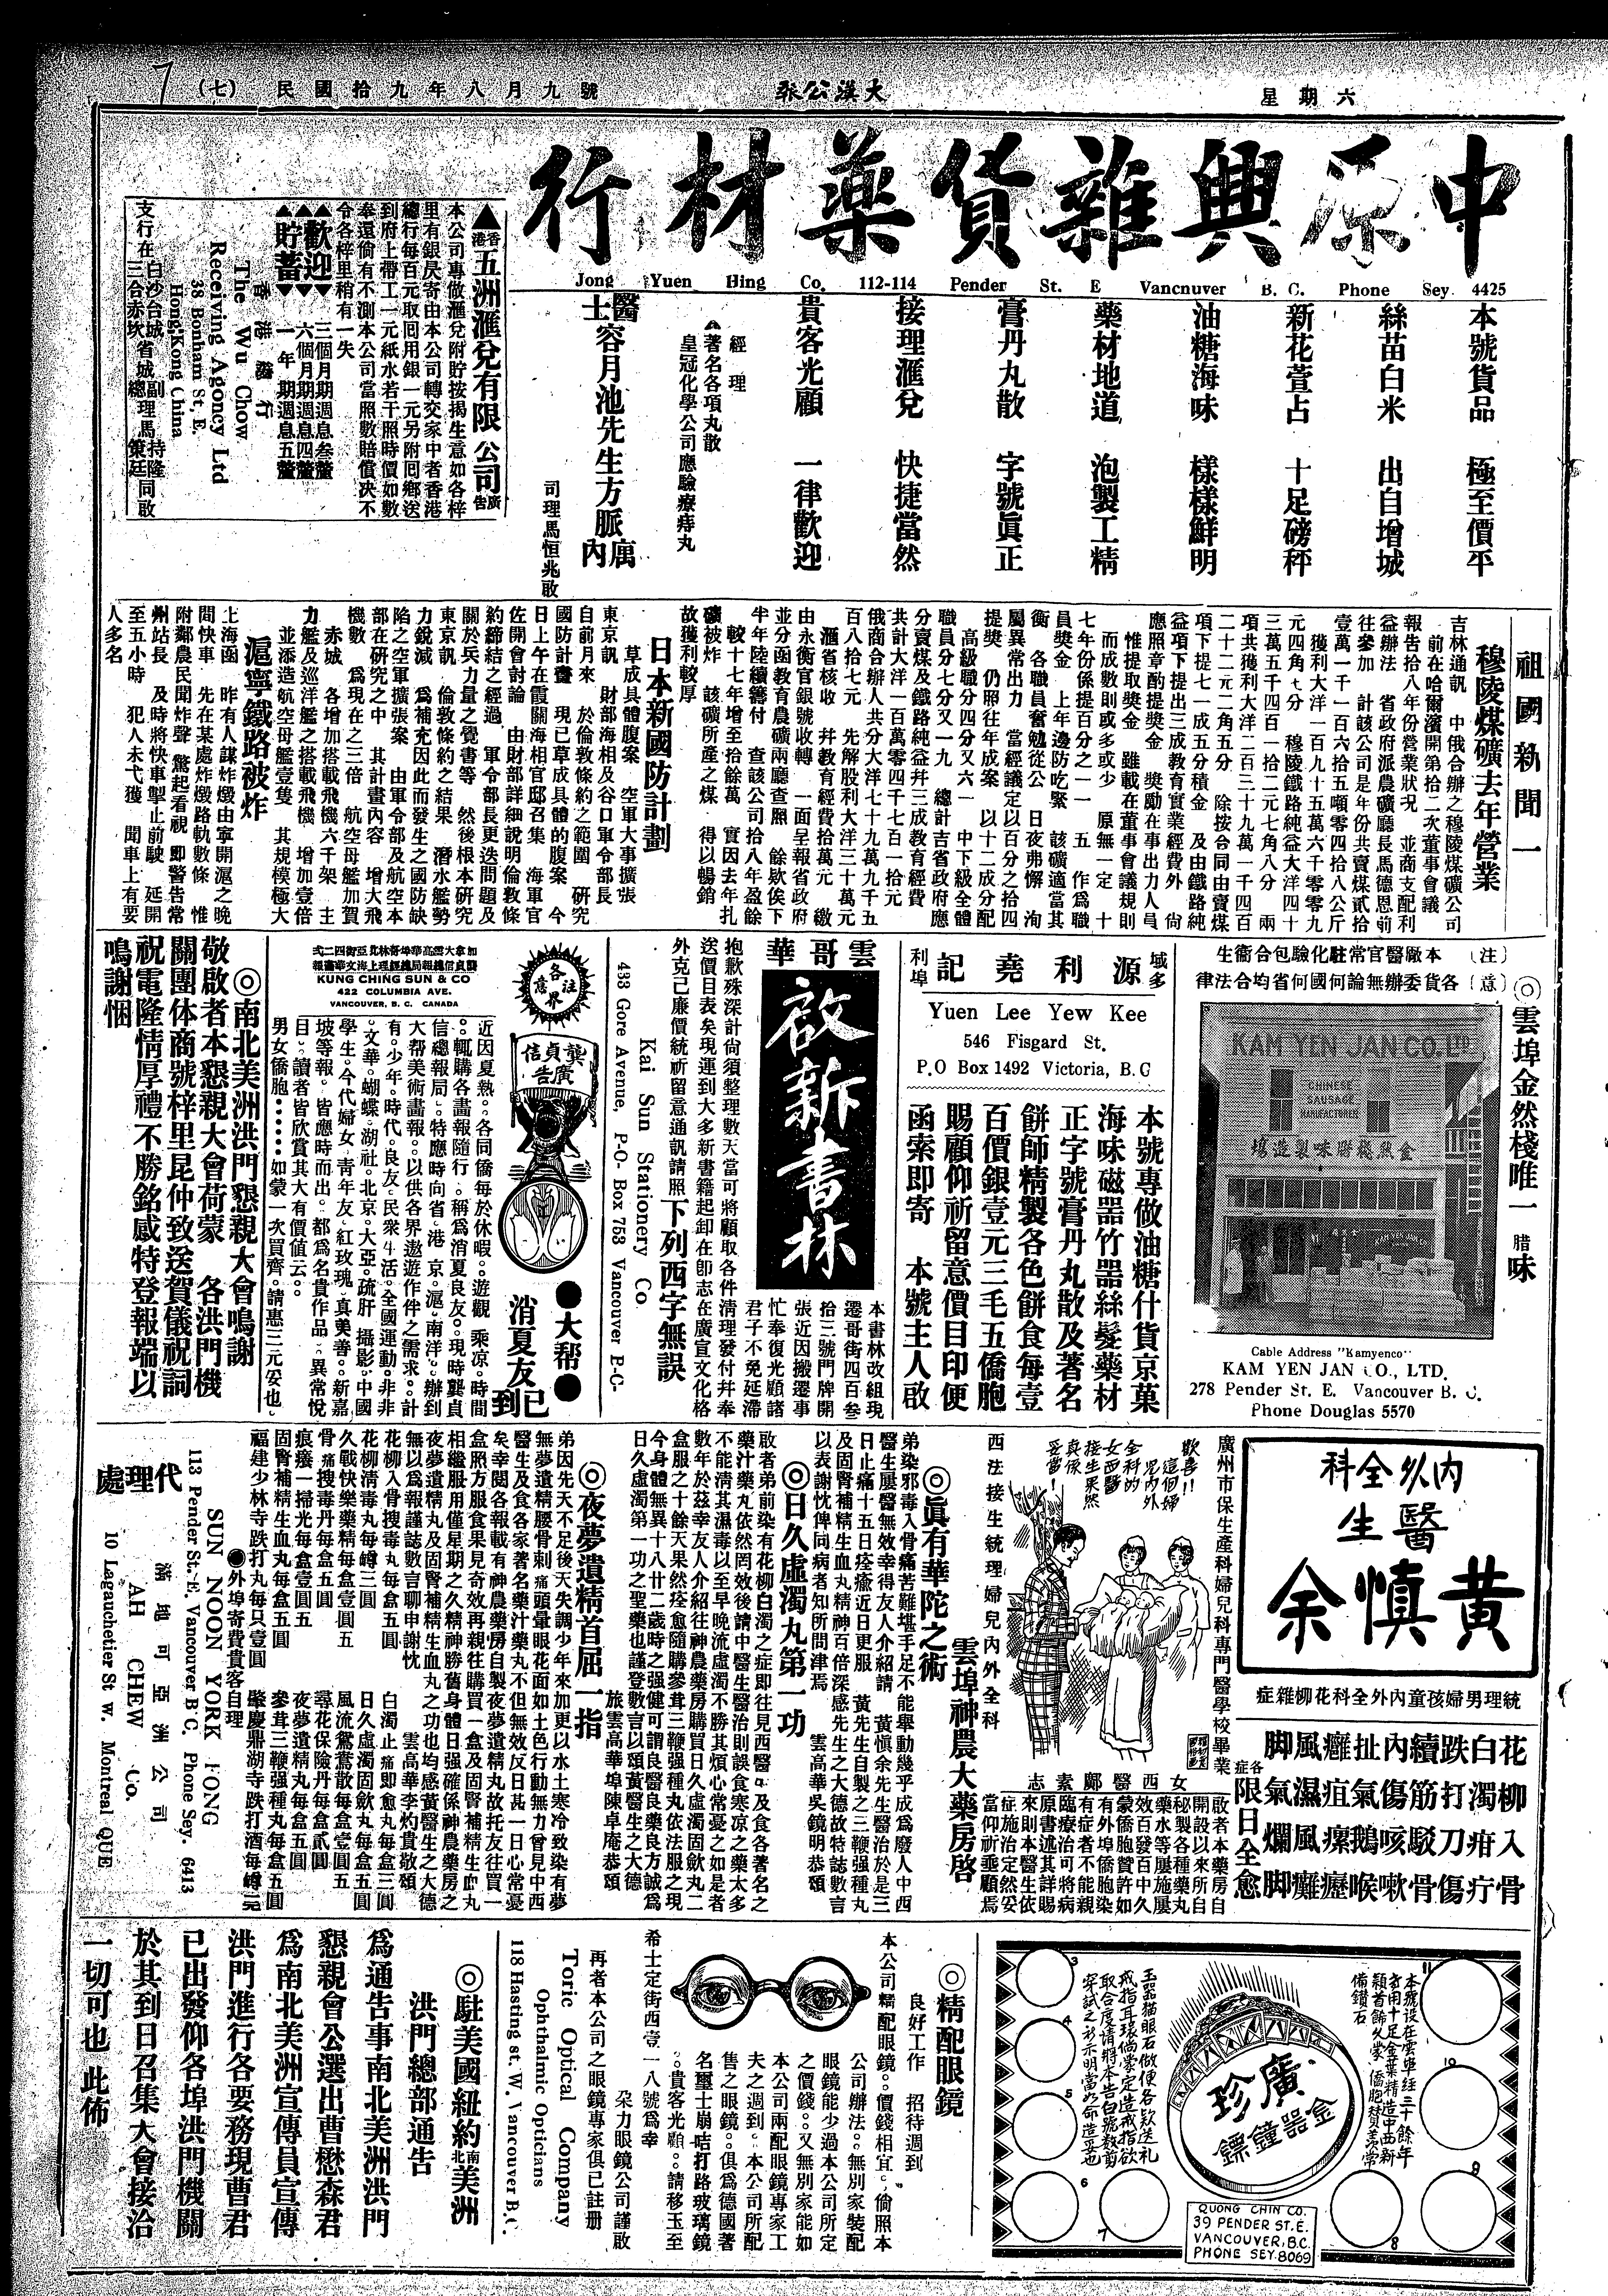 星期六
大漢公報
民國拾九年八月九號
(七)
中原興雜貨藥材行
Jong Yuen Hing Co. 112-114 Pender St. E Vancouver B. C. Phone Sey 4425
本號貨品 極至價平
絲苗白米 出自增城
新花萱占 十足磅秤
油糖海味 樣樣鮮明
藥材地道 泡製工精
膏丹丸散 字號眞正
接理滙兌 快捷當然
貴客光顧 一律歡迎
經理
著名各項丸散
皇冠化學公司應驗療痔丸
醫士容月池先生方脈寓內
司理馬恒兆啟
▲香港五洲滙兌有限公司廣告
本公司專做滙兌附貯按揭生意如各梓
里有銀艮寄由本公司轉交家中者香港
總行每百元取回用銀一元另附回鄉送
到府上帶工一元紙水若干照時價如數
奉還倘有不測本公司當照數賠償决不
令各梓里稍有一失
歡迎
貯蓄
三個月期週息叁釐
六個月期週息四釐
一年期週息五釐
香港發行
The Wu Chow
Receiving Agency Ltd
38 Bonham St, E.
Hong Kong China
支行在白沙台城
三合赤坎省城
副 持隆
總理馬 策廷 同啟
祖國新聞一
穆陵煤礦去年營業
吉林通訊 中俄合辦之穆陵煤礦公司
前在哈爾濱開第拾二次董事會議
報告拾八年份營業狀况 並商支配利
益辦法 省政府派農礦廳長馬德恩前
往參加 計該公司是年份共賣煤貳拾
壹萬一千一百六拾五噸零四拾八公斤
獲利大洋一百九十五萬六千零零九
元四角七分 穆陵鐵路純益大洋四十
三萬五千四百一拾二元七角八分 兩
項共獲利大洋二百三十九萬一千四百
二十二元二角五分 除按合同由賣煤
項下提七一成五分積金 及由鐵路純
益項下提出三成教育實業經費外 尙
應照章酌提獎金 獎勵在事出力人員
惟提取獎金 雖載在董事會議規則
而成數則或多或少 原無一定 十
七年份係提百分之一一 五 作爲職
員獎金 上年邊防吃緊 該礦適當其
衝 各職員奮勉從公 日夜弗懈 洵
屬異常出力 當經議定以百分之拾四
提獎 仍照往年成案 以十二成分配
高級職分四分又六一 中下級全體
職員七分又一九 總計吉省政府應
分賣煤及鐵路純益幷三成教育經費
共計大洋一百萬零四千七百一拾元
俄商合辦人共分大洋七十九萬九千五
百八拾七元 先解股利大洋三十萬元
滙省核收 幷教育經費拾萬元 繳
由永衡官銀號收轉 一面呈報省政府
並分函教育農礦兩廳查照 餘欵俟下
半年陸續籌付 查該公司拾八年盈餘
較十七年增至拾餘萬 實因去年扎
礦被炸 該礦所產之煤 得以暢銷
故獲利較厚
日本新國防計劃
草成具體腹案 空軍大事擴張
東京訊 財部海相及谷口軍令部長
自前月來 於倫敦條約之範圍 研究
國防計畫 現已草成具體的腹案 今
日上午在霞關海相官邸召集 海軍官
佐開會討論 由財部詳細說明倫敦條
約締結之經過 軍令部長更迭問題及
關於兵力量之覺書等 然後根本研究
東京訊 倫敦條約之結果 潛水艦勢
力銳減 爲補充因此而發生之國防缺
陷之空軍擴張案 由軍令部及航空本
部在研究之中 其計畫內容 增大飛
機數 爲現在之三倍 航空母艦加賀
赤城 各增加搭載飛機六千架 主
力艦及巡洋艦之搭載飛機 增加壹倍
並添造航空母艦壹隻 其規模極大
滬寧鐵路被炸
上海函 昨有人謀炸燬由寧開滬之晚
間快車 先在某處炸燬路軌數條 惟
附鄰農民聞炸聲 驚起看視 即警告常
州站長 及時將快車掣止前駛 延開
至五小時 犯人未弋獲 聞車上有要
人多名
◎雲埠金然棧唯一臘味
(注意)
本廠醫官常駐化驗包合衞生
各貨委辦無論何國何省均合法律
KAM YEN JAN CO. LTD
CHINESE SAUSAGE MANUFACTURER
金然棧臘味製造塲
Cable Address "Kamyenco"
KAM YEN JAN CO., LTD.
278 Pender St. E. Vancouver B. C.
Phone Douglas 5570
域多利埠
源利堯記
Yuen Lee Yew Kee
546 Fisgard St.
P.O Box 1492 Victoria, B.C
本號專做油糖什貨京菓
海味磁器竹器絲髮藥材
正字號膏丹丸散及著名
餅師精製各色餅食每壹
百價銀壹元三毛五僑胞
賜顧仰祈留意價目印便
函索即寄 本號主人啟
雲哥華
啟新書林
本書林改組現
遷哥街四百叁
拾三號門牌開
張近因搬遷事
忙奉復光顧諸
君子不免延滯
抱歉殊深計尙須整理數天當可將顧取各件淸理發付幷奉
送價目表矣現運到大多新書籍起卸在卽志在廣宣文化格
外克己廉價統祈留意通訊請照下列西字無誤
Kai Sun Stationery Co
433 Gore Avenue, P.O. Box 763 Vancouver B.C.
各界注意
龔貞信廣告
●大帮●
消夏友已到
加拿大雲高華埠哥林比亞街四二弍
龔貞信總報局總經理上海文華畵報
KUNG CHING SUN & CO
422 COLUMBIA AVE.
VANCOUVER, B. C. CANADA
近因夏熱。各同僑每於休暇。遊觀 乘凉。時間
。輒購各畵報隨行。稱爲消夏良友。現時龔貞
信總報局。特應時向省。港 京。滬。南洋。辦到
大帮美術畵報。以供各界遨遊作伴之需求。計
有。少年。時代。良友。民衆生活。全國運動。非非
。文華。蝴蝶。湖社。北京。大亞。疏肝 攝影。中國
學生。今代婦女 靑年友。紅玫瑰。真美善。新嘉
坡等報。皆應時而出。都爲名貴作品。異常悅
目。讀者皆欣賞其大有價值云。
男女僑胞……如蒙一次買齊。請惠三元妥也。
◎南北美洲洪門懇親大會鳴謝
敬啟者本懇親大會荷蒙 各洪門機
關團体商號梓里昆仲致送賀儀祝詞
祝電隆情厚禮不勝銘感特登報端以
鳴謝悃
內外全科
醫生
黃慎余
統理男婦孩童內外全科花柳雜症
花柳入骨
白濁疳疔
跌打刀傷
續筋駁骨
內傷咳嗽
扯氣鵝喉
癰疽瘰癧
風濕風癱
脚氣爛脚
各症限日全愈
廣州市保生產科婦兒科專門醫學校畢業
歡喜!!
這個婦
兒內外
全科的
女西醫
接生果然
真係
妥當!
西法接生統理婦兒內外全科
女西醫鄺素志
啟者本藥房自
開設以來所自
秘製各種藥丸
藥水等屢施屢
效百發百中久
蒙僑胞贊許如
有外埠僑胞染
有症者不能親
臨療治可將病
原書述其詳賜
來則本醫生依
症施治定然妥
當仰祈垂顧焉
雲埠神農大藥房啓
◎眞有華陀之術
弟染邪毒入骨痛苦難堪手足不能舉動幾乎成爲廢人中西
醫生屢醫無效幸得友人介紹請 黃愼余先生醫治於是三
日止痛十五日痊癒近日更服 黃先生自製之三鞭强種丸
及固腎補精生血丸精神百倍深感先生之大德故特誌數言
以表謝忱俾同病者知所問津焉 雲高華吳鏡明恭頌
◎日久虛濁丸第一功
啟者弟前染有花柳白濁之症即往見西醫。及食各著名之
藥汁藥丸依然罔效後請中醫生醫治則誤食寒凉之藥太多
不能淸其濕毒以至早晚流虛濁不勝其煩心常憂之如是者
數年於茲幸友人介紹往神農藥房購買日久虛濁固歛丸二
盒服之十餘天果然痊愈隨購參茸三鞭强種丸依法服之現
今身體無異十八廿二歲時之强健可謂良醫良藥良方誠爲
日久虛濁第一功之聖藥也謹登數言以頌黃醫生之大德
旅雲高華埠陳卓庵恭頌
◎夜夢遺精首屈一指
弟因先天不足後天失調少年來加更以水土寒冷致染有夢
無夢遺精腰骨刺痛頭暈眼花面如土色行動無力曾見中西
醫生及食各家著名藥汁藥丸不但無效反日甚一日心常憂
矣幸閱各報載有神農藥房自製夜夢遺精丸故托友往買一
盒照方服食果見奇效再親往購買一盒及固腎補精生血丸
相繼服用僅星期之久精神勝舊身體日强確係神農藥房之
夜夢遺精丸及固腎補精生血丸之功也均感黃醫生之大德
無以爲報謹誌數言聊申謝忱 雲高華李灼貴敬頌
花柳入骨搜毒丸每盒五圓
花柳淸毒丸每罇三圓
久戰快樂藥精每盒壹圓五
骨痛搜毒丹每盒五圓
痕癢一掃光每盒壹圓五
固腎補精生血丸每盒五圓
福建少林寺跌打丸每只壹圓
白濁止痛即愈丸每盒三圓
日久虛濁固歛丸每盒五圓
風流鴛鴦散每盒壹圓五
尋花保險丹每盒貳圓
夜夢遺精丸每盒五圓
參茸三鞭强種丸每盒五圓
肇慶鼎湖寺跌打酒每罇壹元
●外埠寄費貴客自理
代理處
SUN NOON YORK FONG
113 Pender St. E. Vancouver B C. Phone Sey. 6413
滿地可亞洲公司
AH CHEW Co.
10 Lagauchetier St w. Montreal QUE
本號設在雲埠經三十餘年
者用十足金葉精造中西新
穎首飾久蒙 僑胞贊美常
備鑽石
玉器貓眼石做便各欵送禮
戒指耳環倘蒙定造戒指欲
取合度請將本告白號數剪
穿試之示明當必命造妥也
廣珍
金器鐘鏢
QUONG CHIN CO.
39 PENDER ST. E.
VANCOUVER, B.C.
PHONE SEY. 8069
3
4
5
6
7
8
9
10
11
◎精配眼鏡
良好工作 招待週到
本公司精配眼鏡。價錢相宜。倘照本
公司辦法。無別家裝配
眼鏡能少過本公司所定
之價錢。又無別家能如
本公司兩配眼鏡專家工
夫之週到。本公司所配
售之眼鏡。俱爲德國著
名璽士崩咭打路玻璃鏡
。貴客光顧。請移玉至
希士定街西壹一八號爲幸
朶力眼鏡公司謹啟
再者本公司之眼鏡專家俱已註册
Toric Optical Company
Ophthalmic Opticians
118 Hasting st. W. Vancouver B.C.
◎駐美國紐約南北美洲
洪門總部通告
爲通告事南北美洲洪門
懇親會公選出曹懋森君
爲南北美洲宣傳員宣傳
洪門進行各要務現曹君
已出發仰各埠洪門機關
於其到日召集大會接洽
一切可也 此佈